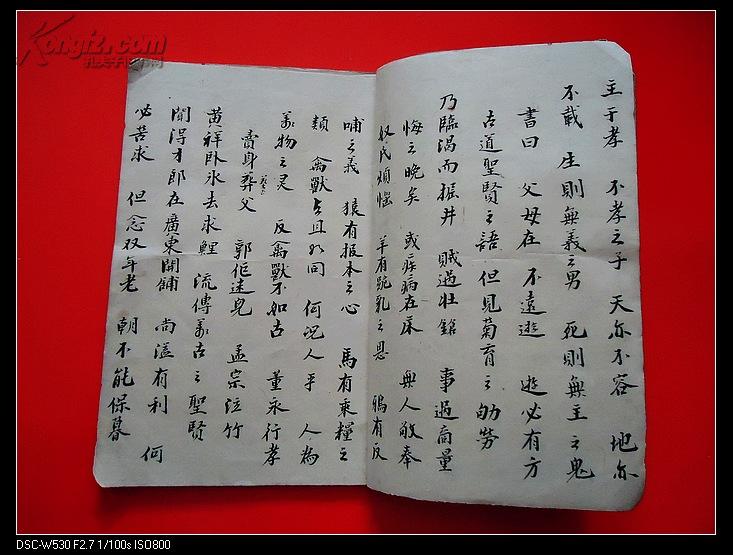 主于孝 不孝之子 天亦不容 地亦
不載 生則無義之男 死則無主之鬼
書曰 父母在 不遠遊 遊必有方
古道聖賢之語 但見菊育之劬勞
乃臨渴而掘井 賊過壯鎗 事過商量
悔之晚矣 或疾病在床 無人敬奉
奴氏煩惱 羊有跪乳之恩 鴉有反
哺之義 猿有报本之心 馬有乘糧之
類 禽獸 且 同 何况人乎 人為
萬物之灵 反禽獸不如古 董永行孝
賣身葬父 郭佢迷兒 孟宗泣竹
黄祥卧氷去求鯉 流傳萬古之聖賢
聞得才郎在廣東開鋪 尚溢有利 何
必苦求 但念双年老 朝不能保暮
Kongfz.com
孔夫子旧书网
DSC-W530 F2.7 1/100s ISO800